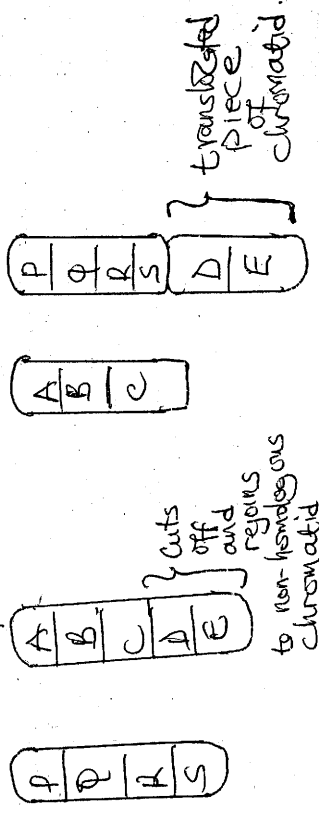 P
Q
R
S
A
B
C
D
E
Cuts
off
and
rejoins
to non-homologous
chromatid
A
B
C
P
Q
R
S
D
E
translocated
piece
of
chromatid